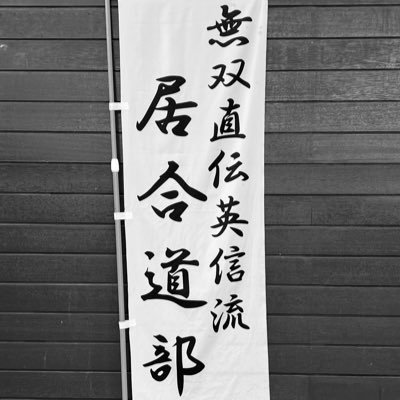 無双直伝英信流
居合道部